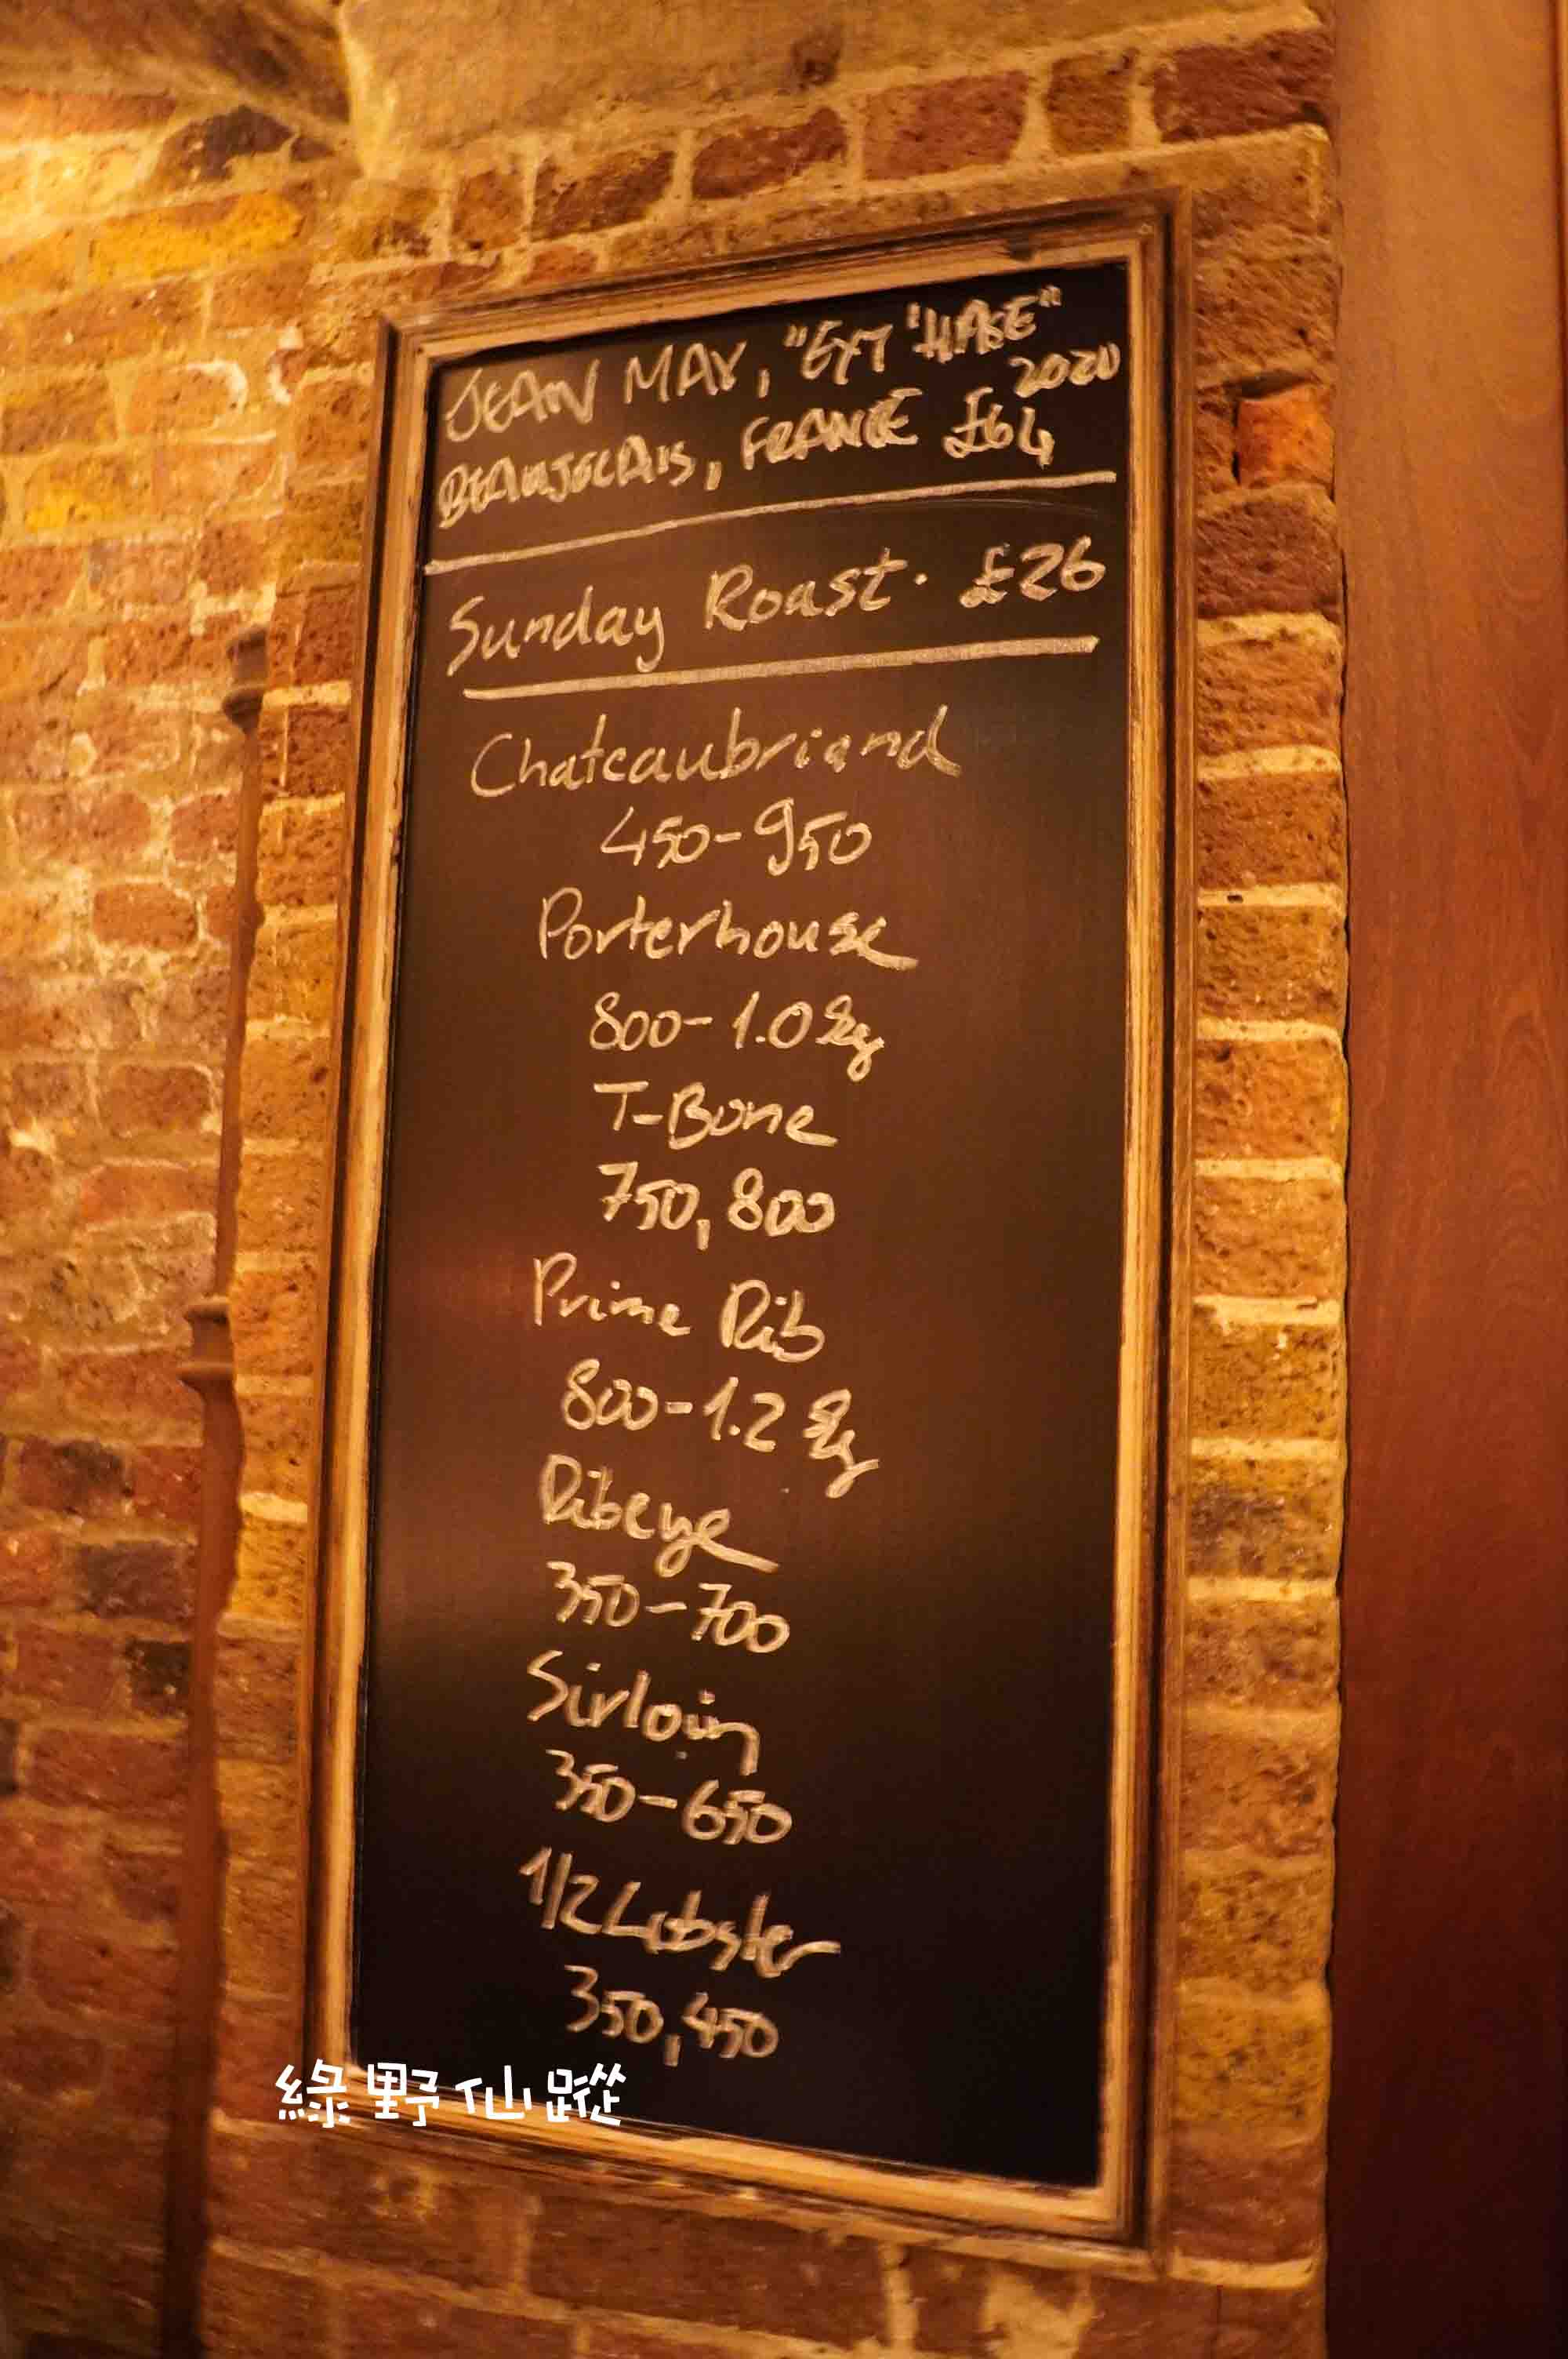 JEAN MAY, "EXT 'HASE"
2020
BEAUJOLAIS, FRANCE £64
Sunday Roast. £26
Chateaubriand
450-950
Porterhouse
800-1.0 kg
T-Bone
750, 800
Prime Rib
800-1.2 kg
Ribeye
350-700
Sirloin
350-650
1/2 Lobster
350, 450
綠野仙蹤